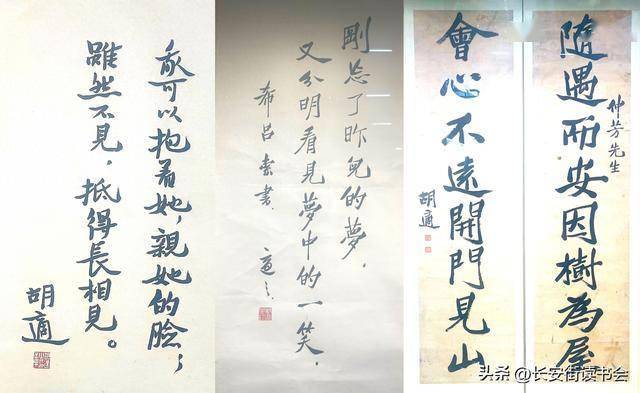 亦可以抱着她，親她的臉；
雖然不見，抵得長相見。
胡適
剛忘了昨兒的夢，
又分明看見夢中的一笑．
希呂索書．適之．
仲芳先生
隨遇而安因樹為屋
會心不遠開門見山
胡適
头条 @长安街读书会